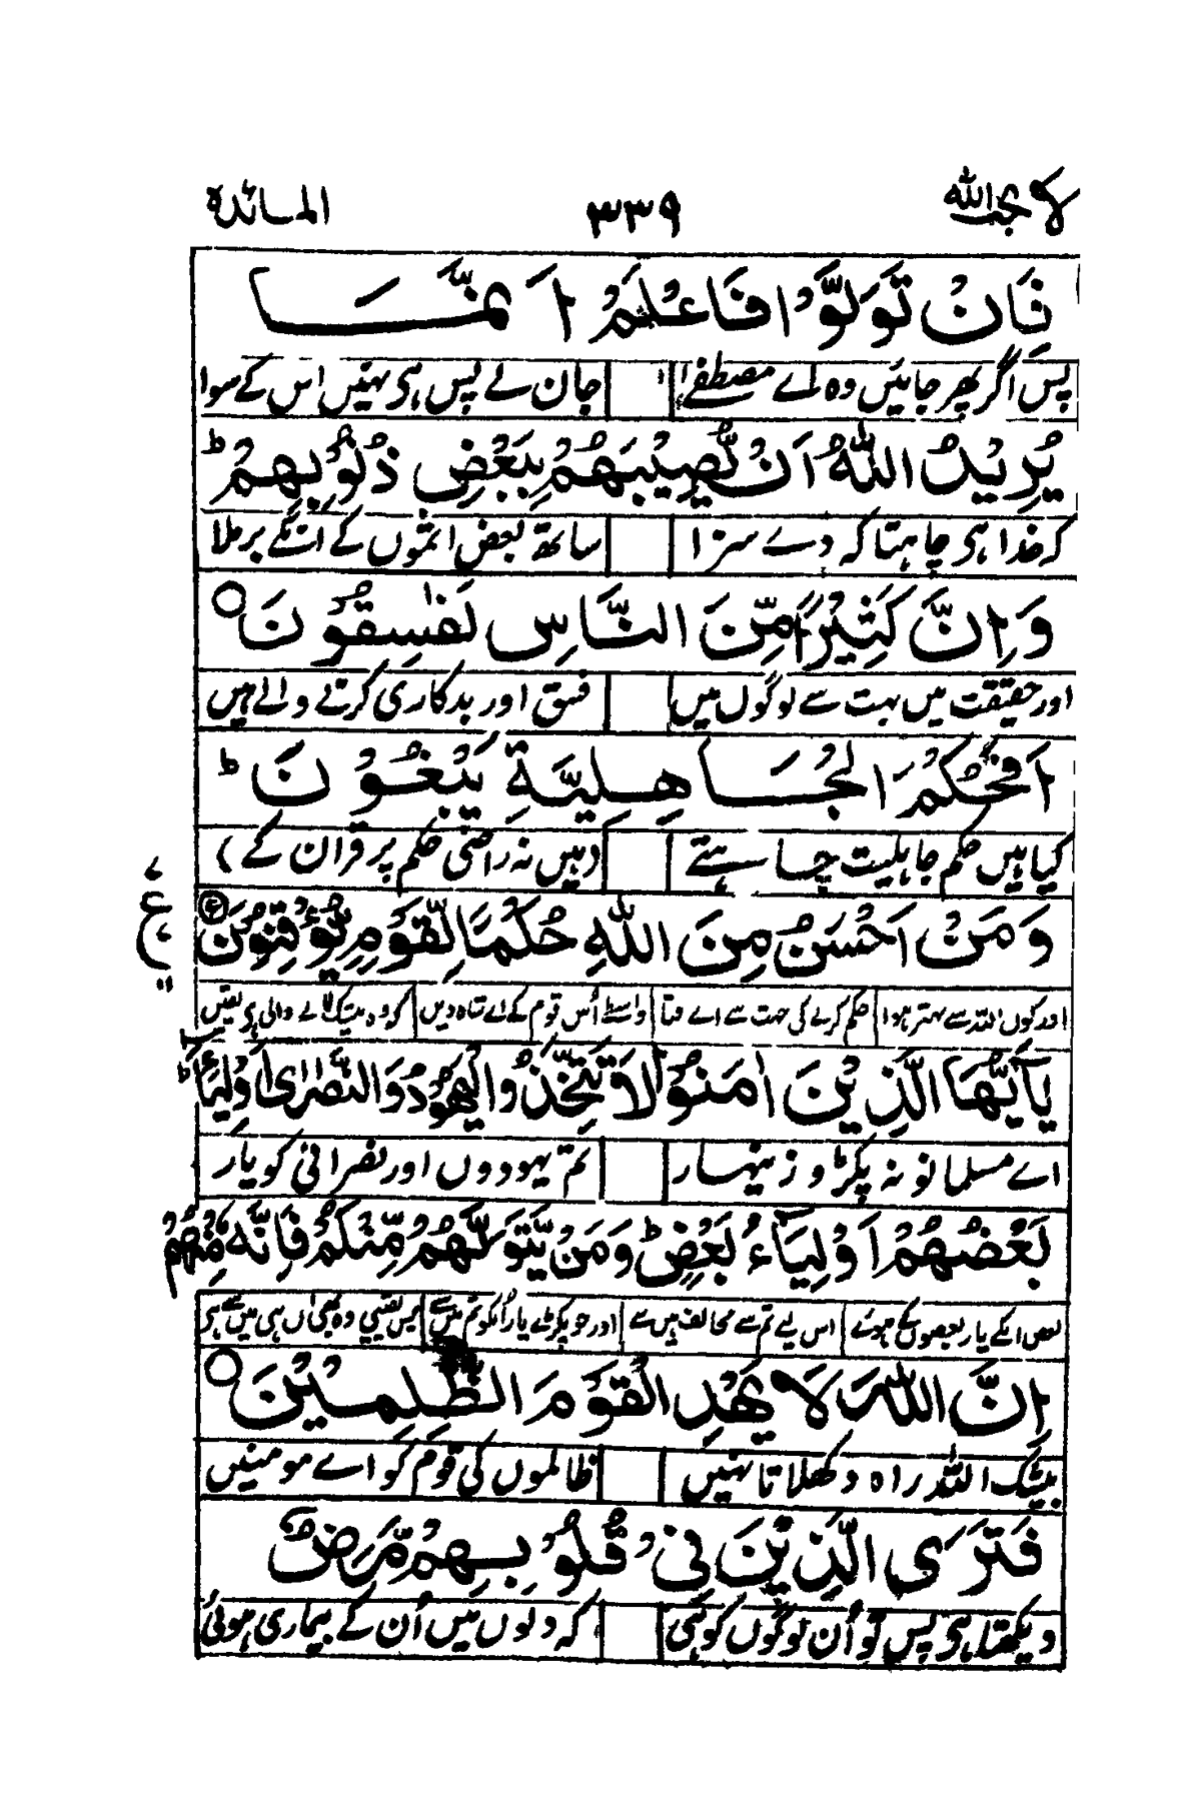 لا یحب اللہ ۳۳۹ المائدۃ
فَاِنْ تَوَلَّوْا فَاعْلَمْ اَنَّمَا
پس اگر پھر جائیں وہ اے مصطفےٰ جان لے پس ہی نہیں اس کے سوا
یُرِیْدُ اللّٰہُ اَنْ یُّصِیْبَہُمْ بِبَعْضِ ذُنُوْبِہِمْ ؕ
کہ خدا ہی چاہتا کہ دے سزا ساتھ بعض اثموں کے انکے برملا
وَ اِنَّ کَثِیْرًا مِّنَ النَّاسِ لَفٰسِقُوْنَ ○
اور حقیقت میں بہت سے لوگوں میں فسق اور بدکاری کرتے والے ہیں
اَفَحُکْمَ الْجَاہِلِیَّۃِ یَبْغُوْنَ ؕ
کیا ہیں حکم جاہلیت چاہتے (ہیں نہ راضی حکم پر قرآن کے)
وَ مَنْ اَحْسَنُ مِنَ اللّٰہِ حُکْمًا لِّقَوْمٍ یُّوْقِنُوْنَ
ع
اور کون اللہ سے بہتر ہوا حکم کرنے کی جہت سے اے فتا واسطے اُس قوم کے اے شاہ دیں کہ وہ بیشک لانے والی ہی یقیں
یٰۤاَیُّہَا الَّذِیْنَ اٰمَنُوْا لَا تَتَّخِذُوا الْیَہُوْدَ وَ النَّصٰرٰۤی اَوْلِیَآءَ ؕ
اے مسلمانو نہ پکڑو زینہار تم یہودوں اور نصرانی کو یار
بَعْضُہُمْ اَوْلِیَآءُ بَعْضٍ ؕ وَ مَنْ یَّتَوَلَّہُمْ مِّنْکُمْ فَاِنَّہٗ مِنْہُمْ
بعض انکے یار بعضوں کے ہوئے اس لیے تم سے مخالف ہیں سے اور جو پکڑے یار اُنکو تم میں سے پس یقینی وہ بھی اُن ہی میں سے ہی
اِنَّ اللّٰہَ لَا یَہْدِی الْقَوْمَ الظّٰلِمِیْنَ ○
بیشک اللہ راہ دکھلاتا نہیں ظالموں کی قوم کو اے مومنیں
فَتَرَی الَّذِیْنَ فِیْ قُلُوْبِہِمْ مَّرَضٌ
دیکھتا ہی پس تو اُن لوگوں کو بھی کہ دلوں میں اُن کے بیماری ہوئی